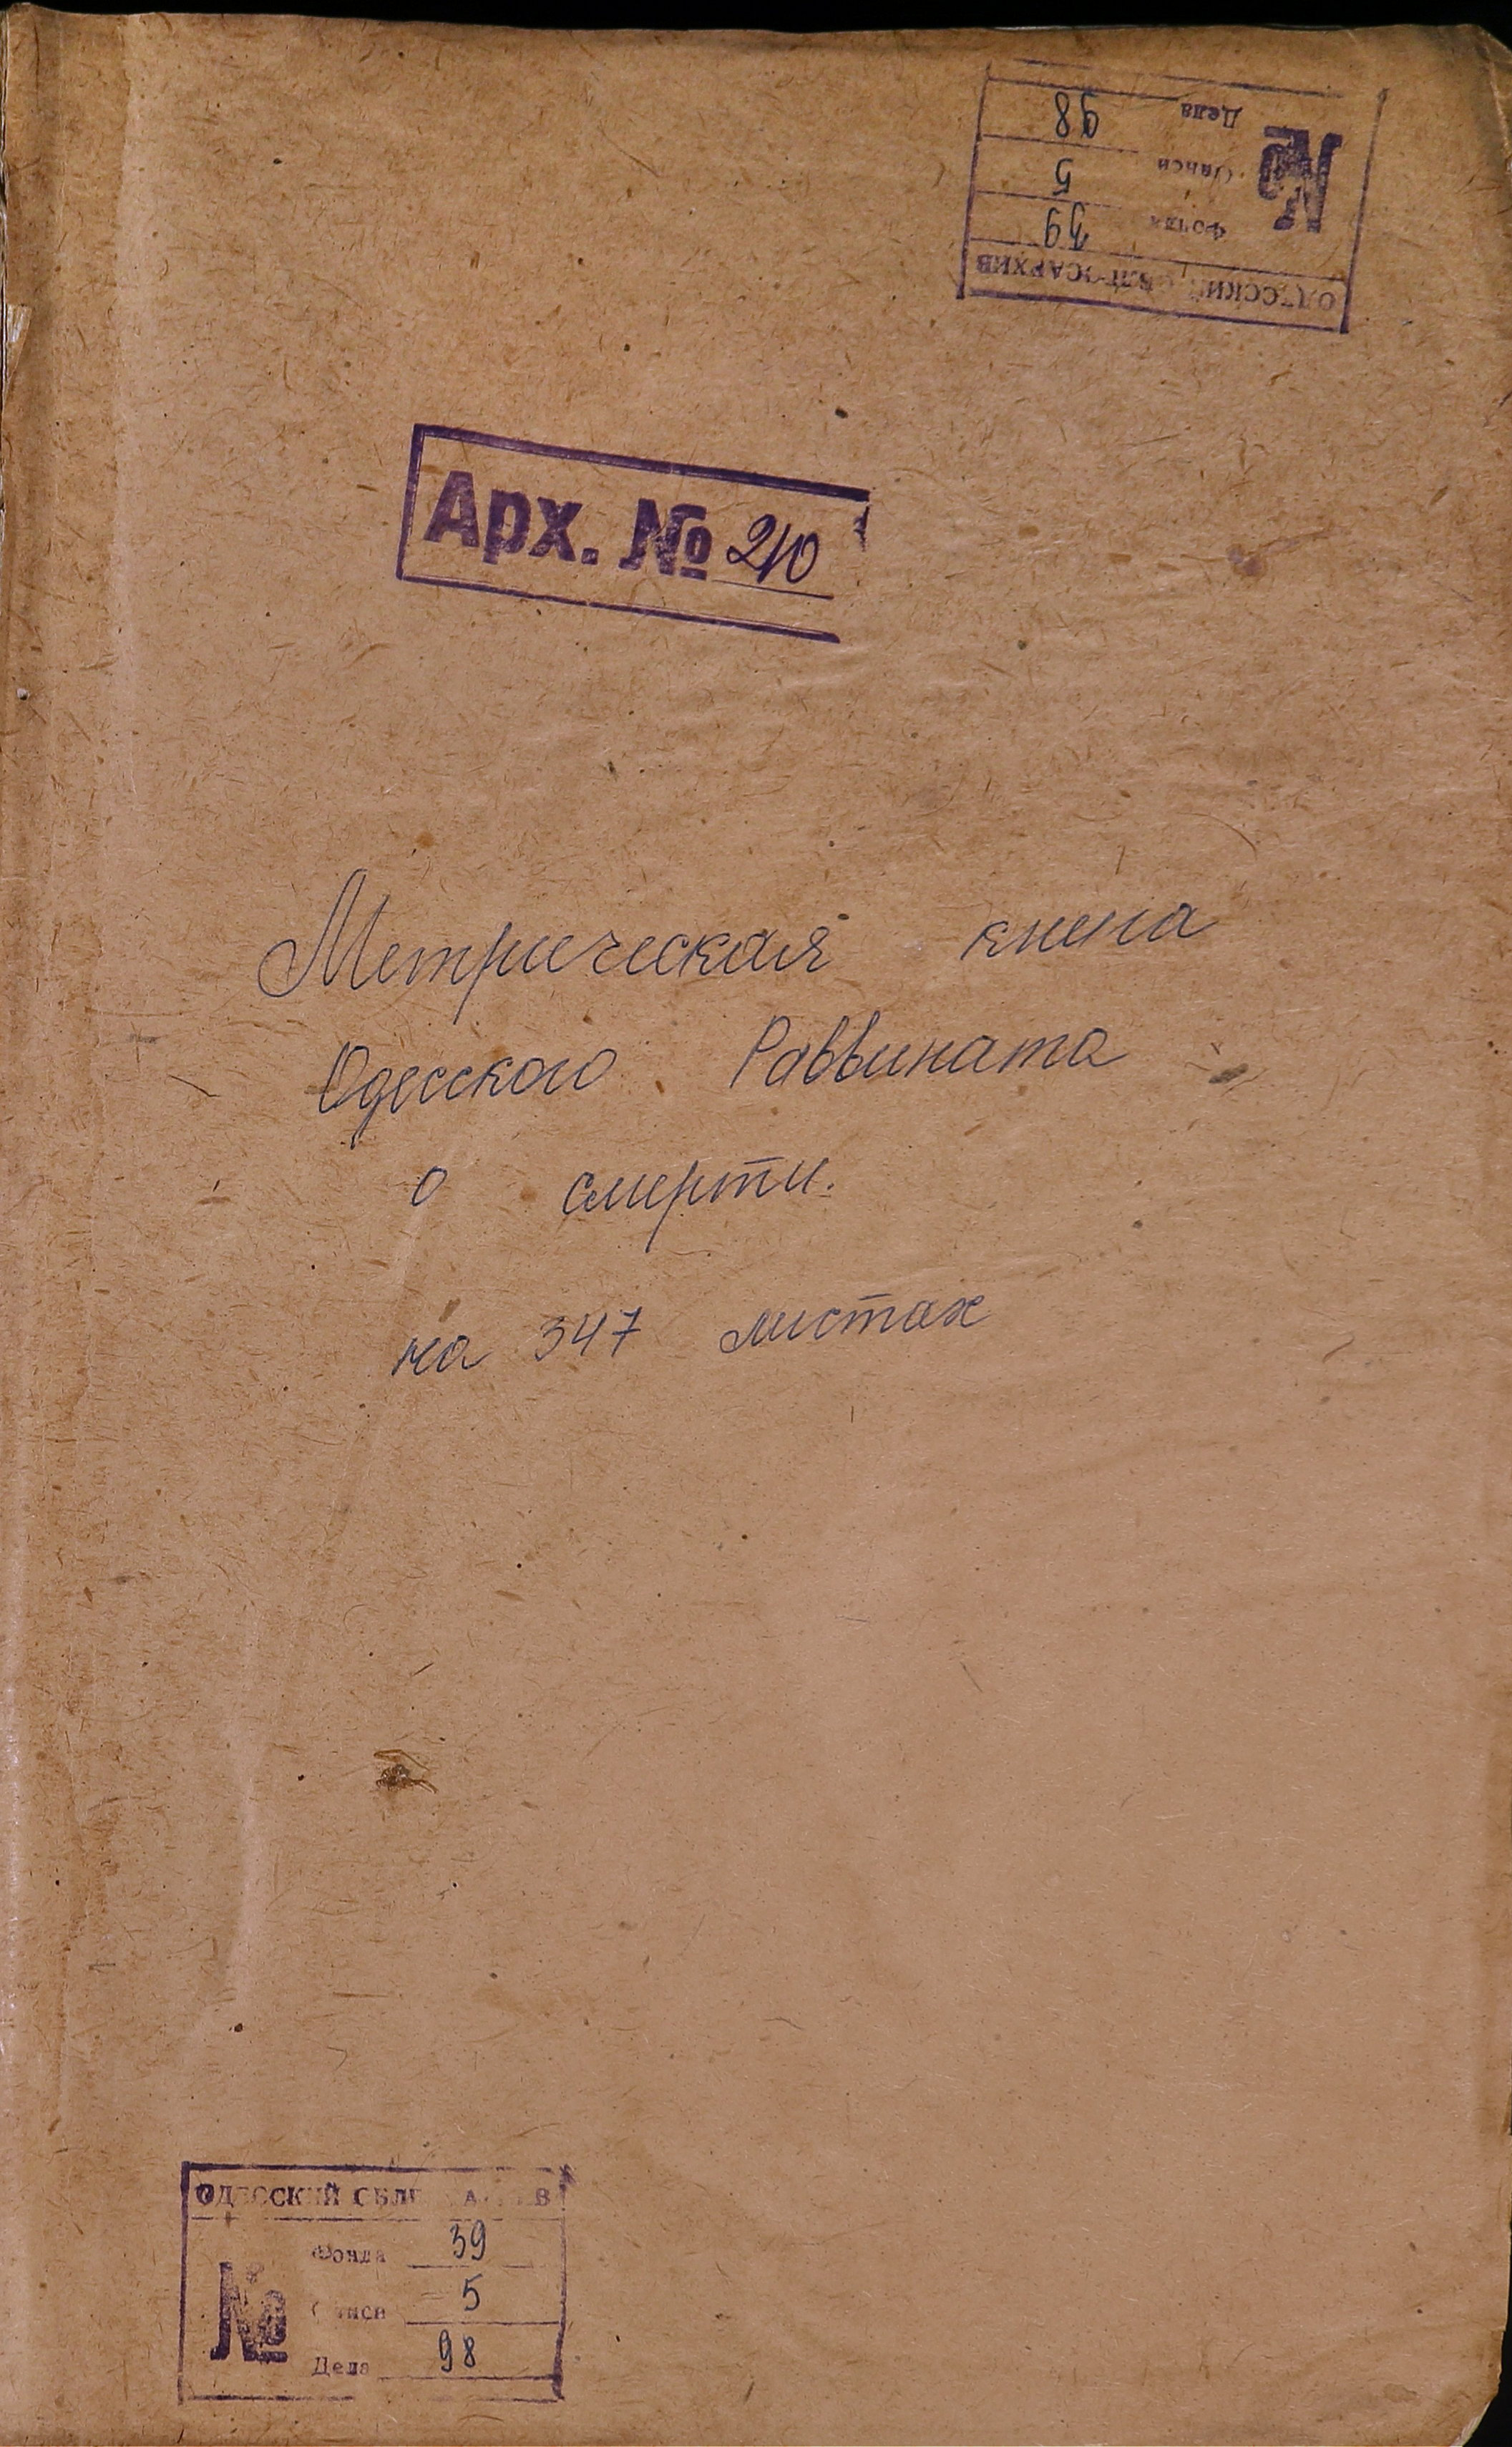 ОДЕССКИЙ ОБЛГОСАРХИВ
Фонда 39
№ Описи 5
Дела 98
Арх. № 210
Метрическая книга
Одесского Раввината
о смерти.
на 347 листах
ОДЕССКИЙ ОБЛГОСАРХИВ
Фонда 39
№ Описи 5
Дела 98